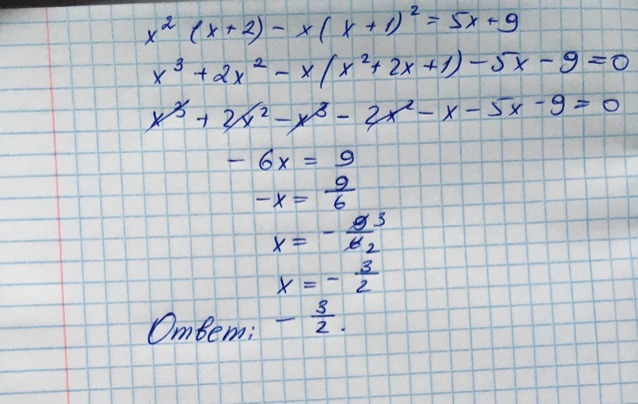 x² (x+2) - x(x+1)² = 5x+9
x³ + 2x² - x(x²+2x+1) - 5x - 9 = 0
x³ + 2x² - x³ - 2x² - x - 5x - 9 = 0
- 6x = 9
-x = 9/6
x = - 9/6 3/2
x = - 3/2
Ответ: - 3/2.